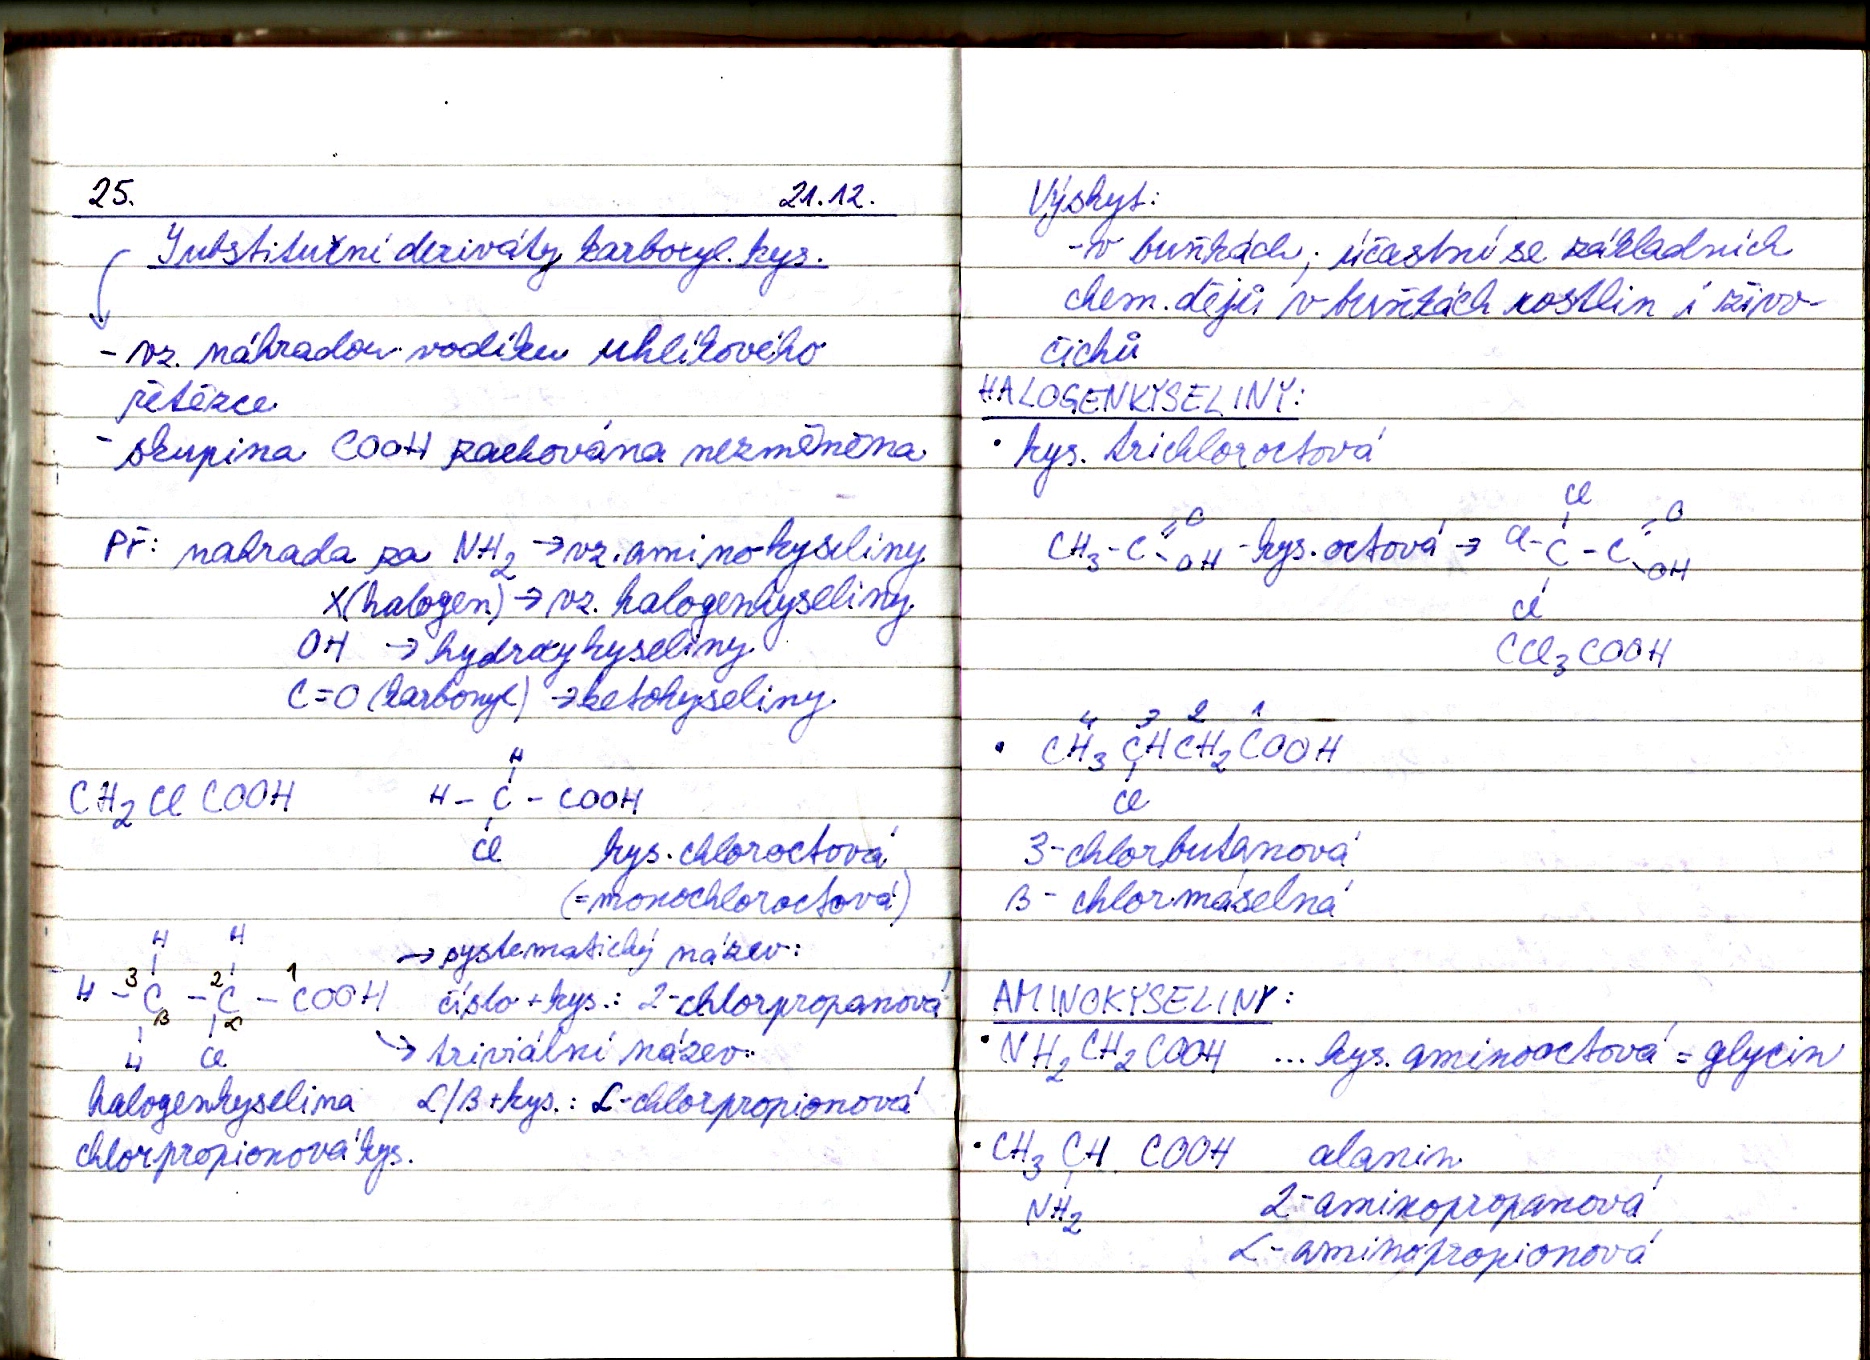 25. 21.12.
Substituční deriváty karboxyl. kys.
- vz. náhradou vodíku uhlíkového
řetězce
- skupina COOH zachována nezměněna
Př: nahrada za NH2 → vz. aminokyseliny
X(halogen) → vz. halogenkyseliny
OH → hydroxykyseliny
C=O (karbonyl) → ketokyseliny
H
CH2ClCOOH H - C - COOH
Cl kys. chloroctová
(=monochloroctová)
H H → systematický název:
H - 3C - 2C - 1COOH číslo + kys.: 2-chlorpropanová
β α
H Cl → triviální název:
halogenkyselina α/β + kys.: α-chlorpropionová
chlorpropionová kys.
Výskyt:
- v buňkách; účastní se základních
chem. dějů v buňkách rostlin i živo-
čichů
HALOGENKYSELINY:
• kys. trichloroctová
Cl
CH3 - C =O -OH - kys. octová → Cl - C - C =O -OH
Cl
CCl3COOH
4 3 2 1
• CH3CHCH2COOH
Cl
3-chlorbutanová
β - chlormáselná
AMINOKYSELINY:
• NH2CH2COOH ... kys. aminooctová = glycin
• CH3 CH COOH alanin
NH2 2-aminopropanová
α-aminopropionová